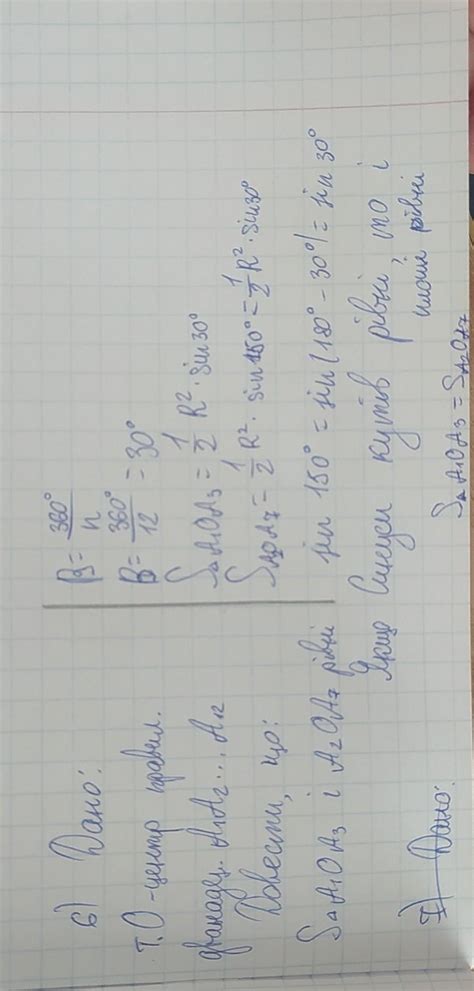 6) Дано:
т. О - центр правил.
дванадц. A1A2... A12
Довести, що:
S△A1OA3 і A2OA7 рівні
β = 360°/n
β = 360°/12 = 30°
S△A1OA3 = 1/2 R² · sin30°
SA2OA7 = 1/2 R² · sin150° = 1/2 R² · sin30°
sin 150° = sin(180° - 30°) = sin 30°
Якщо синуси кутів рівні, то і
площі рівні
S△A1OA3 = SA2OA7
Дано: